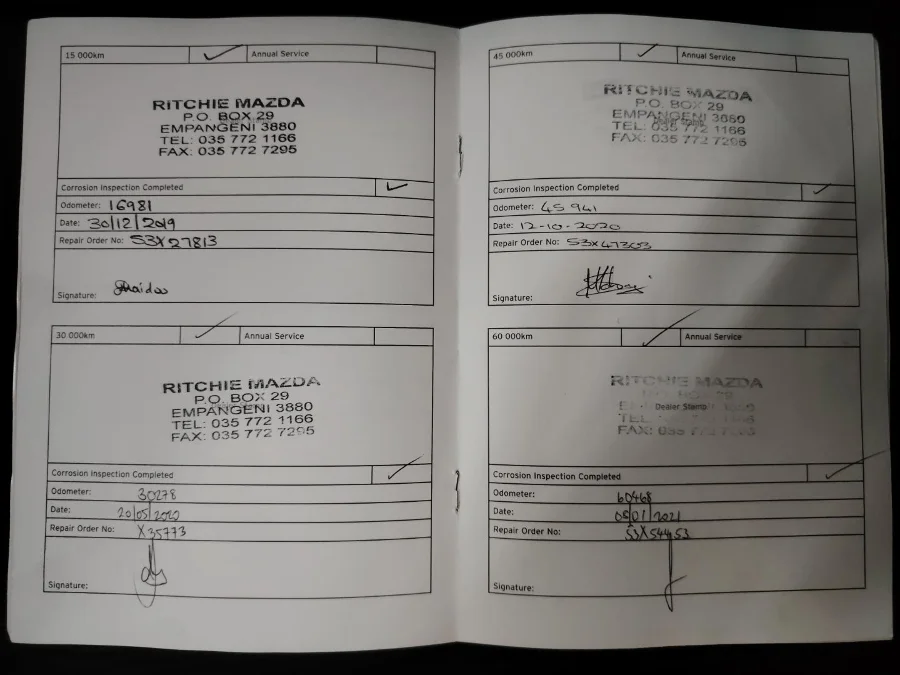 15 000km ✓ Annual Service
RITCHIE MAZDA
P.O. BOX 29
EMPANGENI 3880
TEL: 035 772 1166
FAX: 035 772 7295
Corrosion Inspection Completed ✓
Odometer: 16981
Date: 30/12/2019
Repair Order No: S3X27813
Signature:
30 000km ✓ Annual Service
RITCHIE MAZDA
P.O. BOX 29
EMPANGENI 3880
TEL: 035 772 1166
FAX: 035 772 7295
Corrosion Inspection Completed ✓
Odometer: 30278
Date: 20/05/2020
Repair Order No: X35773
Signature:
45 000km ✓ Annual Service
RITCHIE MAZDA
P.O. BOX 29
EMPANGENI 3880
Dealer Stamp
TEL: 035 772 1166
FAX: 035 772 7295
Corrosion Inspection Completed ✓
Odometer: 45 941
Date: 12-10-2020
Repair Order No: S3X47303
Signature:
60 000km ✓ Annual Service
RITCHIE MAZDA
Dealer Stamp
Corrosion Inspection Completed ✓
Odometer: 60468
Date: 05/01/2021
Repair Order No: S3X54453
Signature: